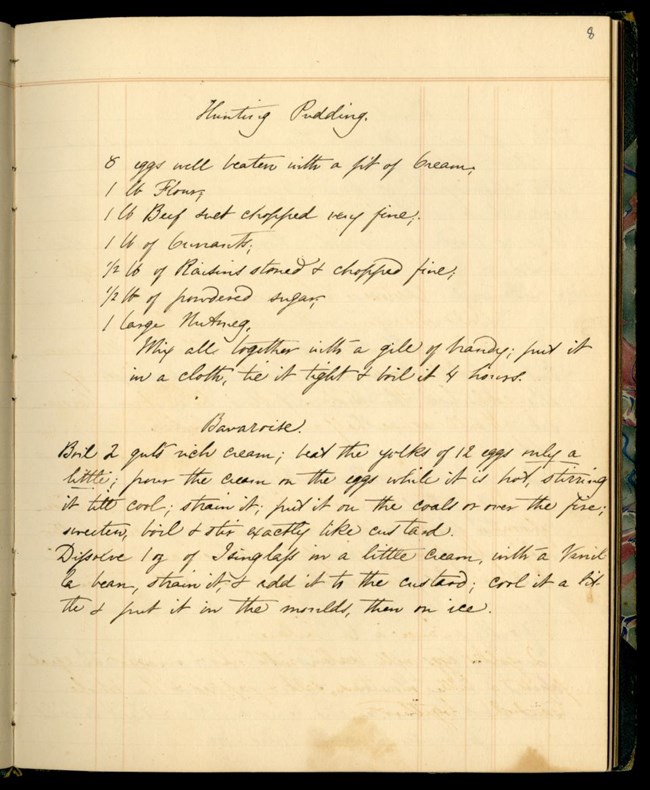 8
Hunting Pudding.
8 eggs well beaten with a pt of Cream,
1 lb Flour,
1 lb Beef suet chopped very fine;
1 lb of Currants;
1/2 lb of Raisins stoned & chopped fine;
1/2 lb of powdered sugar,
1 large Nutmeg,
Mix all together with a gill of brandy; put it
in a cloth, tie it tight & boil it 4 hours.
Bavaroise.
Boil 2 qts rich cream; beat the yolks of 12 eggs only a
little; pour the cream on the eggs while it is hot, stirring
it till cool; strain it; put it on the coals or over the fire;
sweeten, boil & stir exactly like custard.
Dissolve 1 oz of Isinglass in a little cream, with a Vanil
la bean, strain it, & add it to the custard; cool it a lit
tle & put it in the moulds, then on ice.